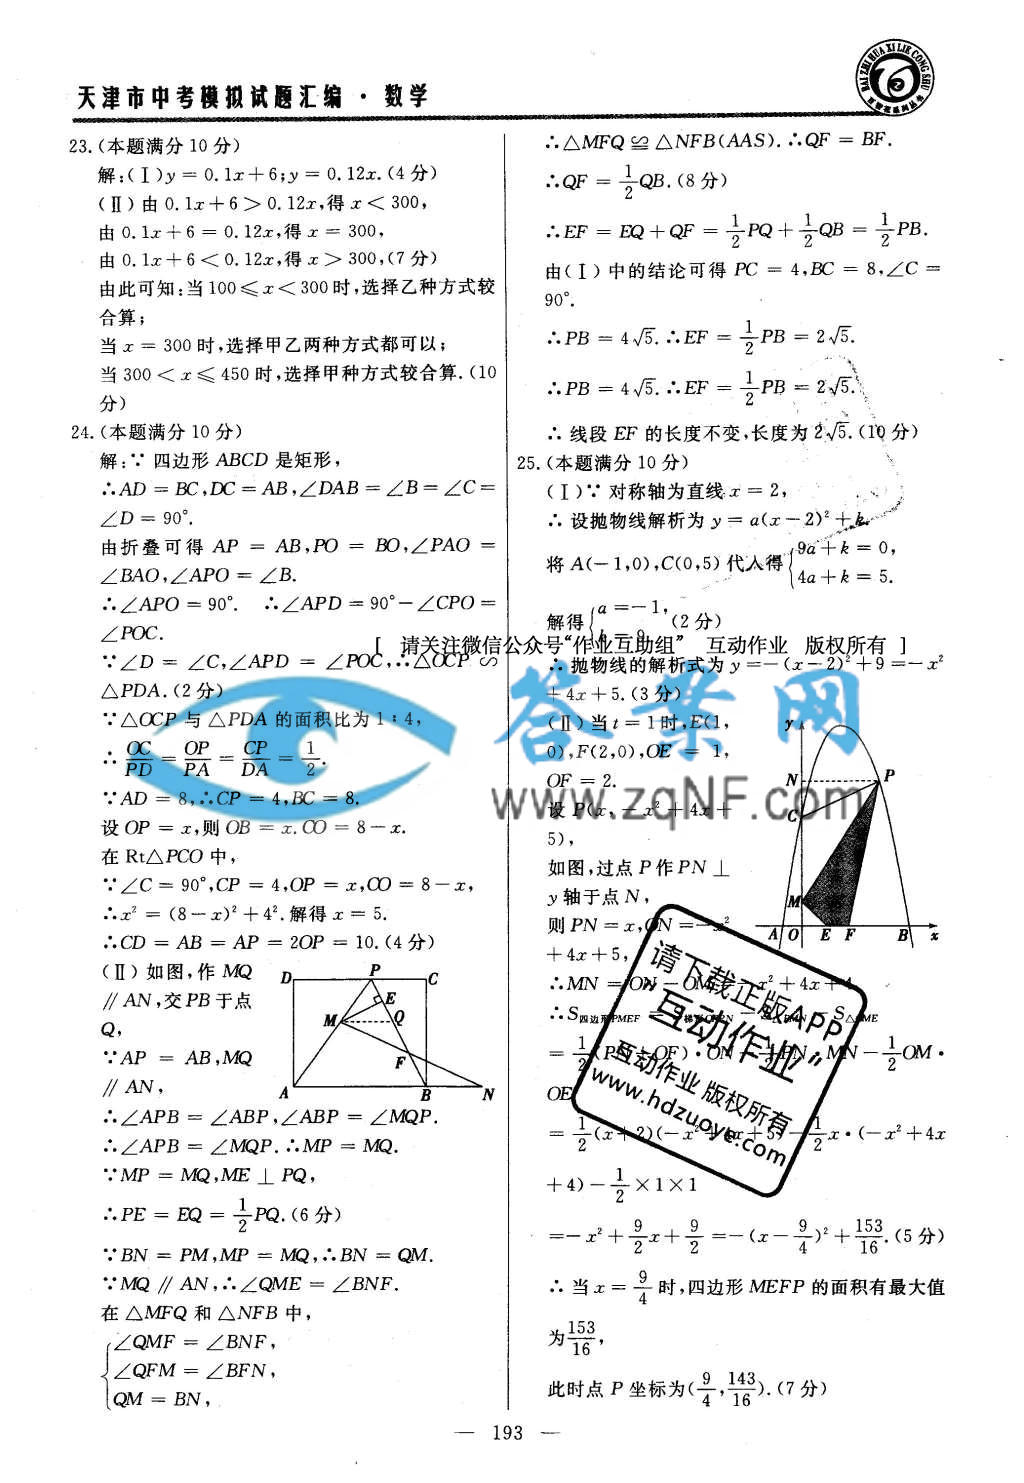 天津市中考模拟试题汇编·数学
BAI ZHI HUA XI LIE CONG SHU
23.(本题满分10分)
解:(Ⅰ)y = 0.1x+6;y = 0.12x.(4分)
(Ⅱ)由0.1x+6>0.12x,得x<300,
由0.1x+6 = 0.12x,得x = 300,
由0.1x+6<0.12x,得x>300,(7分)
由此可知:当100≤x<300时,选择乙种方式较
合算;
当x = 300时,选择甲乙两种方式都可以;
当300<x≤450时,选择甲种方式较合算.(10
分)
24.(本题满分10分)
解:∵ 四边形ABCD是矩形,
∴AD = BC,DC = AB,∠DAB = ∠B = ∠C =
∠D = 90°.
由折叠可得 AP = AB,PO = BO,∠PAO =
∠BAO,∠APO = ∠B.
∴∠APO = 90°. ∴∠APD = 90°-∠CPO =
∠POC.
∵∠D = ∠C,∠APD = ∠POC,∴△OCP∽
△PDA.(2分)
∵△OCP与△PDA的面积比为1∶4,
∴ OC/PD = OP/PA = CP/DA = 1/2.
∵AD = 8,∴CP = 4,BC = 8.
设OP = x,则OB = x.CO = 8-x.
在Rt△PCO中,
∵∠C = 90°,CP = 4,OP = x,CO = 8-x,
∴x² = (8-x)²+4².解得x = 5.
∴CD = AB = AP = 2OP = 10.(4分)
(Ⅱ)如图,作MQ
∥AN,交PB于点
Q,
∵AP = AB,MQ
∥AN,
D P C E M Q F A B N
∴∠APB = ∠ABP,∠ABP = ∠MQP.
∴∠APB = ∠MQP.∴MP = MQ.
∵MP = MQ,ME⊥PQ,
∴PE = EQ = 1/2 PQ.(6分)
∵BN = PM,MP = MQ,∴BN = QM.
∵MQ∥AN,∴∠QME = ∠BNF.
在△MFQ和△NFB中,
{∠QMF = ∠BNF,
∠QFM = ∠BFN,
QM = BN,
∴△MFQ≌△NFB(AAS).∴QF = BF.
∴QF = 1/2 QB.(8分)
∴EF = EQ+QF = 1/2 PQ+1/2 QB = 1/2 PB.
由(Ⅰ)中的结论可得PC = 4,BC = 8,∠C =
90°.
∴PB = 4√5.∴EF = 1/2 PB = 2√5.
∴PB = 4√5.∴EF = 1/2 PB = 2√5.
∴线段EF的长度不变,长度为2√5.(10分)
25.(本题满分10分)
(Ⅰ)∵ 对称轴为直线x = 2,
∴设抛物线解析为y = a(x-2)²+k.
将A(-1,0),C(0,5)代入得{9a+k = 0,
4a+k = 5.
解得{a =-1,
k = 9.
(2分)
[ 请关注微信公众号“作业互助组” 互动作业 版权所有 ]
∴抛物线的解析式为y =-(x-2)²+9 =-x²
+4x+5.(3分)
(Ⅱ)当t = 1时,E(1,
0),F(2,0),OE = 1,
OF = 2.
设P(x,-x²+4x+
5),
如图,过点P作PN⊥
y轴于点N,
则PN = x,ON =-x²
+4x+5,
y N P C M A O E F B x
∴MN = ON-OM =-x²+4x+4.
∴S四边形PMEF = S梯形OFPN-S△PMN-S△OME
= 1/2(PN+OF)·ON-1/2 PN·MN-1/2 OM·
OE
= 1/2(x+2)(-x²+4x+5)-1/2 x·(-x²+4x
+4)-1/2×1×1
=-x²+9/2 x+9/2 =-(x-9/4)²+153/16.(5分)
∴当x = 9/4时,四边形MEFP的面积有最大值
为153/16,
此时点P坐标为(9/4,143/16).(7分)
答案网
www.zqNF.com
请下载正版APP
“互动作业”
互动作业 版权所有
www.hdzuoye.com
— 193 —